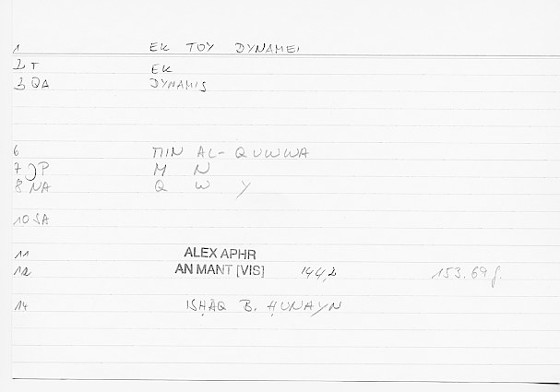 1 EK TOY DYNAMEI
2 T EK
3 QA DYNAMIS
6 MIN AL-QUWWA
7 JP M N
8 NA Q W Y
10 SA
11 ALEX APHR
12 AN MANT [VIS] 144,2 153.69f.
14 ISḤĀQ B. ḤUNAYN